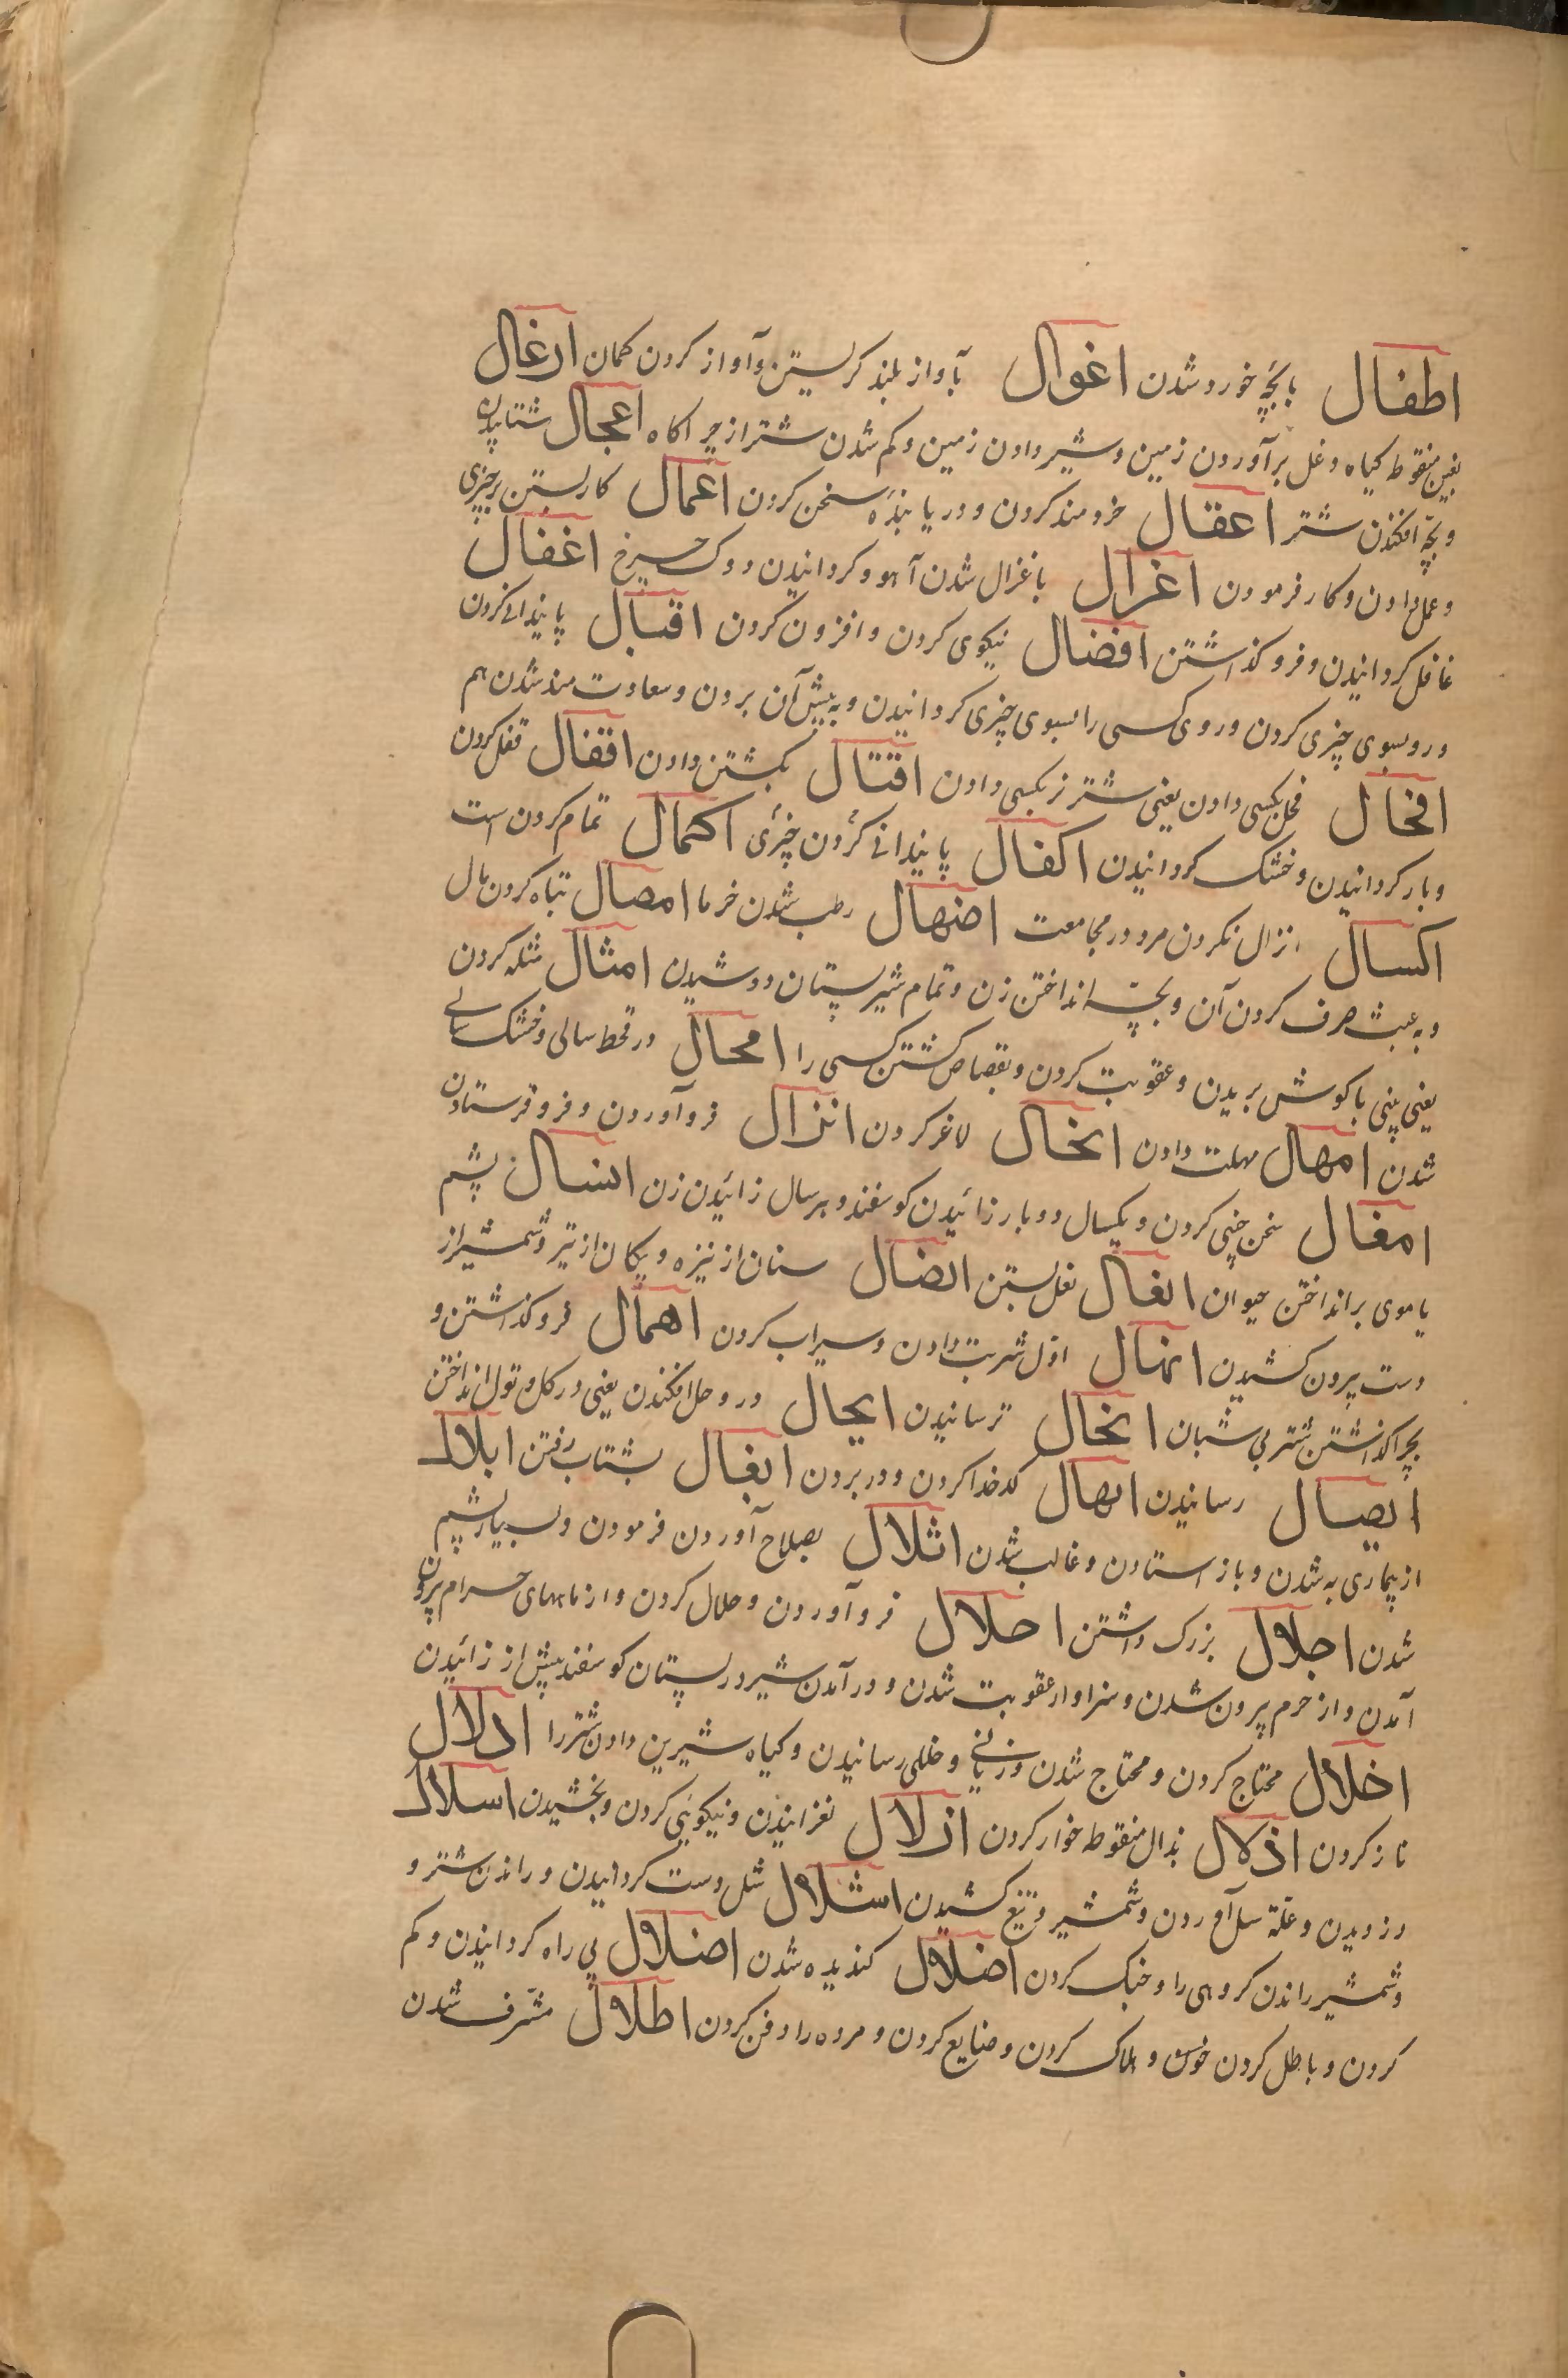 اطفال بابچهٔ خورد شدن اغوال بآواز بلند کریستن وآواز کردن کمان ارغال
بغین منقوط کیاه وغل برآوردن زمین وشیر دادن زمین وکم شدن شتر از چراکاه اعجال شتابیدن
وبچه افکندن شتر اعقال خردمند کردن ودریابنده سخن کردن اعمال کار بستن بر چیزی
وعمل دادن وکار فرمودن اغزال باغزال شدن آهو وکردانیدن دوک چرخ اغفال
غافل کردانیدن وفرو کذاشتن افضال نیکوی کردن وافزون کردن اقبال پایندانی کردن
ورو بسوی چیزی کردن وروی کسی را بسوی چیزی کردانیدن وبه پیش آن بردن وسعادت مند شدن هم
افحال فحل بکسی دادن یعنی شتر نر بکسی دادن اقتال بکشتن دادن اقفال قفل کردن
وبار کردانیدن وخشک کردانیدن اکفال پایندانی کردن چیزی اکمال تمام کردن است
اکسال انزال نکردن مرد در مجامعت اضهال رطب شدن خرما امصال تباه کردن مال
وبه عبث صرف کردن آن وبچه انداختن زن وتمام شیر پستان دوشیدن امثال مثله کردن
یعنی بینی یا کوش بریدن وعقوبت کردن وبقصاص کشتن کسی را امحال در قحط سالی وخشک سالی
شدن امهال مهلت دادن انحال لاغر کردن انزال فرو آوردن وفرو فرستادن
امغال سخن چینی کردن ویکسال دوبار زائیدن کوسفند وهر سال زائیدن زن انسال پشم
یا موی بر انداختن حیوان انعال نعل بستن انضال سنان از نیزه وپیکان از تیر وشمشیر از
دست بیرون کشیدن انهال اول شربت دادن وسیراب کردن اهمال فرو کذاشتن و
بچرا کذاشتن شتر بی شبان انحال ترسانیدن ایحال در وحل افکندن یعنی در کل وتول انداختن
ایصال رسانیدن اهال کدخدا کردن ودور بردن ایغال بشتاب رفتن ابلال
از بیماری به شدن وباز استادن وغالب شدن اثلال بصلاح آوردن فرمودن وبسیار پشم
شدن اجلال بزرک داشتن احلال فرو آوردن وحلال کردن واز ماههای حرام بیرون
آمدن واز حرم بیرون شدن وسزاوار عقوبت شدن ودر آمدن شیر در پستان کوسفند پیش از زائیدن
اخلال محتاج کردن ومحتاج شدن وزیانی وخللی رسانیدن وکیاه شیرین دادن شتر را ادلال
ناز کردن اذلال بذال منقوط خوار کردن ازلال لغزانیدن ونیکوئی کردن وبخشیدن اسلال
دزدیدن وعلة سل آوردن وشمشیر وتیغ کشیدن اشلال شل دست کردانیدن وراندن شتر و
وشمشیر راندن کروهی را وخبک کردن اضلال کندیده شدن اضلال بی راه کردانیدن وکم
کردن وباطل کردن خون وهلاک کردن وضایع کردن ومرده را دفن کردن اطلال مشرف شدن